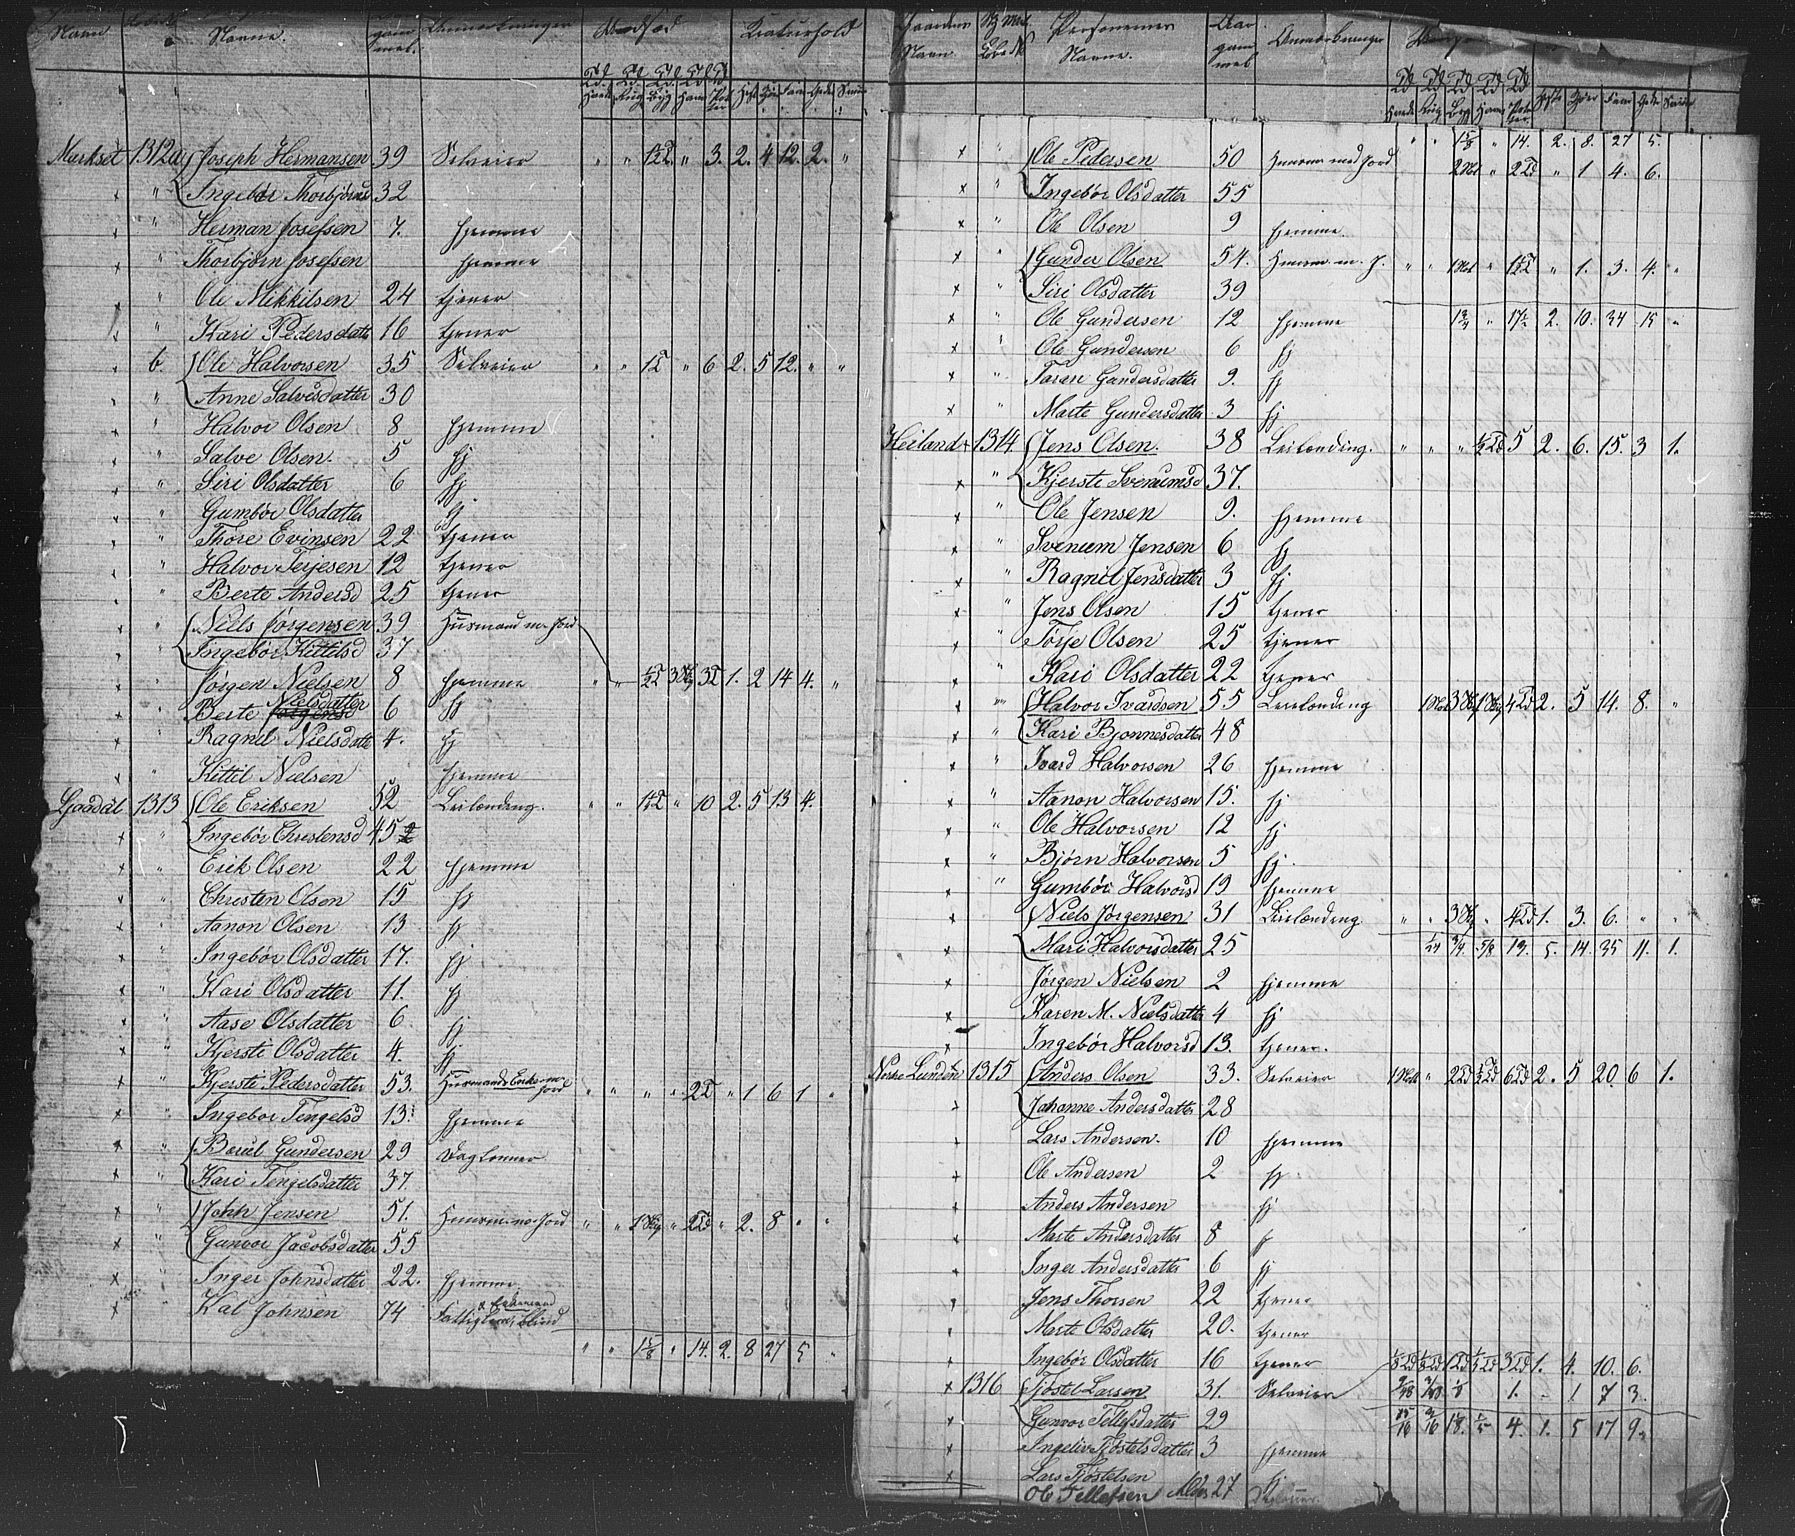 Navn Navne. gam mel. Anmerkninger Udsæd Kreaturhold
Td. Hvede Td. Rug Td. Byg Td. Havre Td. Poteter Heste Faar Geder Sviin
Markset 1312a Joseph Hermansen 39 Selveier " " 1½T " 3. 2. 4 12. 2. "
" Ingebør Thorbjørnsd 32
" Herman Josefsen 7. hjemme
" Thorbjørn Josefsen hjemme
" Ole Mikkilsen 24 tjener
" Kari Pedersdatter 16 tjener
b. Ole Halvorsen 35 Selveier " " 1T " 6 2. 5 12. " "
" Anne Salvesdatter 30
" Halvor Olsen 8 hjemme
" Salve Olsen. 5 hj
" Siri Olsdatter 6 hj
Gumbør Olsdatter hj
" Thore Evinsen 22 tjener
" Halvor Terjesen 12 tjener
" Berte Andersd 25 tjener
" Niels Jørgensen 39 Husmand m Jord
" Ingebør Kittilsd 37
" Jørgen Nielsen 8 hjemme " " ½T 3T 1. 2 14 4. "
Nielsdatter
" Berte Jørgensd 6 hj
" Ragnil Nielsdatt 4. hj
" Kittil Nielsen hjemme
Gaadal 1313 Ole Eriksen 52 Leilænding. " " 1½T " 10 2. 5 13 4.
" Ingebør Christensd 45
" Erik Olsen 22 hjemme
" Christen Olsen 15 hj
" Aanon Olsen 13 hj
" Ingebør Olsdatter 17. hj
" Kari Olsdatter 11. hj
" Aase Olsdatter 6. hj
" Kjersti Olsdatter 4. hj
" Kjerste Pedersdatter 53. Husmands Enke m Jord " " " " 2T " 1 6 1 "
" Ingebor Tengelsd 13. hjemme
" Berul Gundersen 29 Daglønner
" Kari Tengelsdatter 37.
" John Jensen 51. Huusm. m. Jord " " 1 " 2Td " 2. 8 " "
" Gunvor Jacobsdatter 55
" Inger Johnsdatter 22. hjemme
Kal Johnsen 74 Fattiglem, blind
" " 1⅝ " 14. 2. 8 27 5 "
Gaardens Navn Løbe № Personernes Navne. Aar gam mel Anmærkninger
Td Hvede Td Rug Td Byg Td Havre Td Poteter Heste Kjøer Faar Geder Sviin
" " 1⅝ " 14. 2. 8. 27 5.
" Ole Pedersen 50 Huusm med Jord 2 " 2Td " 1 4. 6.
" Ingebør Olsdatter 55
" Ole Olsen 9 hjemme.
" Gunder Olsen 54. Huusm m. J. " " " 1½T " 1. 3. 4. "
" Siri Olsdatter 39
" Ole Gundersen 12 hjemme 1¾ " 17½ 2. 10. 34 15 "
" Ole Gundersen 6 hj
" Taran Gundersdatter 9. hj
" Marte Gundersdatter 3 hj
Heiland 1314 Jens Olsen. 38 Leilænding. " " " ½Td 5 2. 6. 15. 3 1.
" Kjerste Svenumsd 37.
" Ole Jensen 9. hjemme
" Svenum Jensen 6 hj
" Ragnil Jensdatter 3 hj
" Jens Olsen 15 tjener
" Torje Olsen 25 tjener
" Kari Olsdatter 22 tjener
" Halvor Ivardsen 55 Leilænding 4Td 2. 5 14. 8. "
" Kari Bjonnesdatter 48
" Ivard Halvorsen 26 hjemme
" Aanon Halvorsen 15. hj
" Ole Halvorsen 12 hj
" Bjørn Halvorsen 5 hj.
" Gumbør Halvorsd 19 hjemme
Niels Jørgensen 31 Leilænding " " 3 " 4Td 1. 3. 6. " "
Mari Halvorsdatter 25 1/24 ¾ 5/8 19. 5. 14. 35 11. 1.
Jørgen Nielsen 2 hjemme
Karen M. Nielsdatter 4 hj
Ingebør Halvorsd 13. tjener.
Norre Lunden 1315 Anders Olsen 33. Selveier " 2Td ½Td 6Td 2. 5 20. 6 1.
Johanne Andersdatter 28
Lars Andersen. 10 hjemme
Ole Andersen 2 hj.
Anders Andersen hj
Marte Andersdatter 8 hj
Inger Andersdatter 6 hj
Jens Thorsen 22 tjener
Marte Olsdatter 20. tjener
Ingebør Olsdatter 16 tjener 1Td 3Td 1. 4. 10. 6.
1316 Tjöstel Larsen 31. Selveier 1. 1 7 3.
Gunvor Tellefsdatter 29 4. 1. 5 17 9.
Ingeliv Tjöstelsdatter 3 hjemme
Lars Tjöstelsen hj
Ole Tellefsen Alder 27